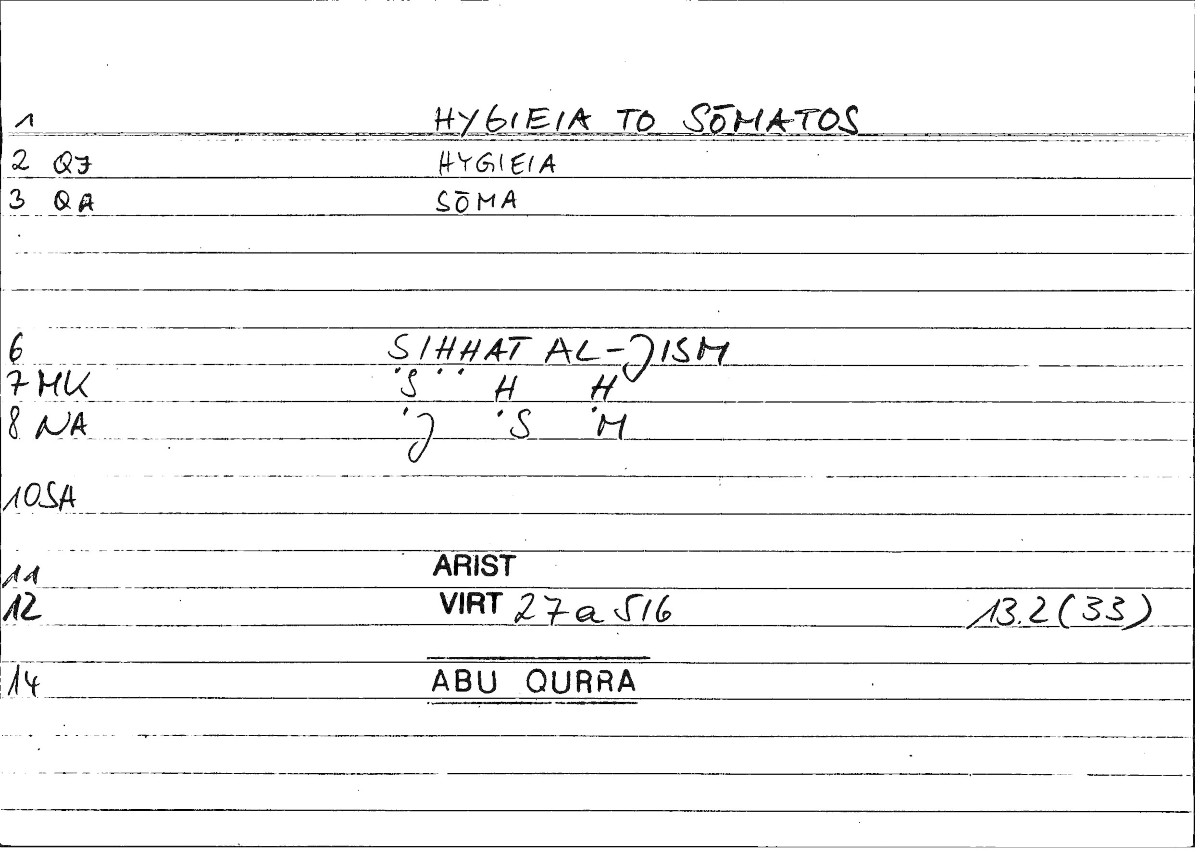 1 HYGIEIA TO SŌMATOS
2 QJ HYGIEIA
3 QA SŌMA
6 ṢIḤḤAT AL-JISM
7 MK Ṣ Ḥ Ḥ
8 NA J S M
10 SA
11 ARIST
12 VIRT 27a5/6 13.2(33)
14 ABU QURRA